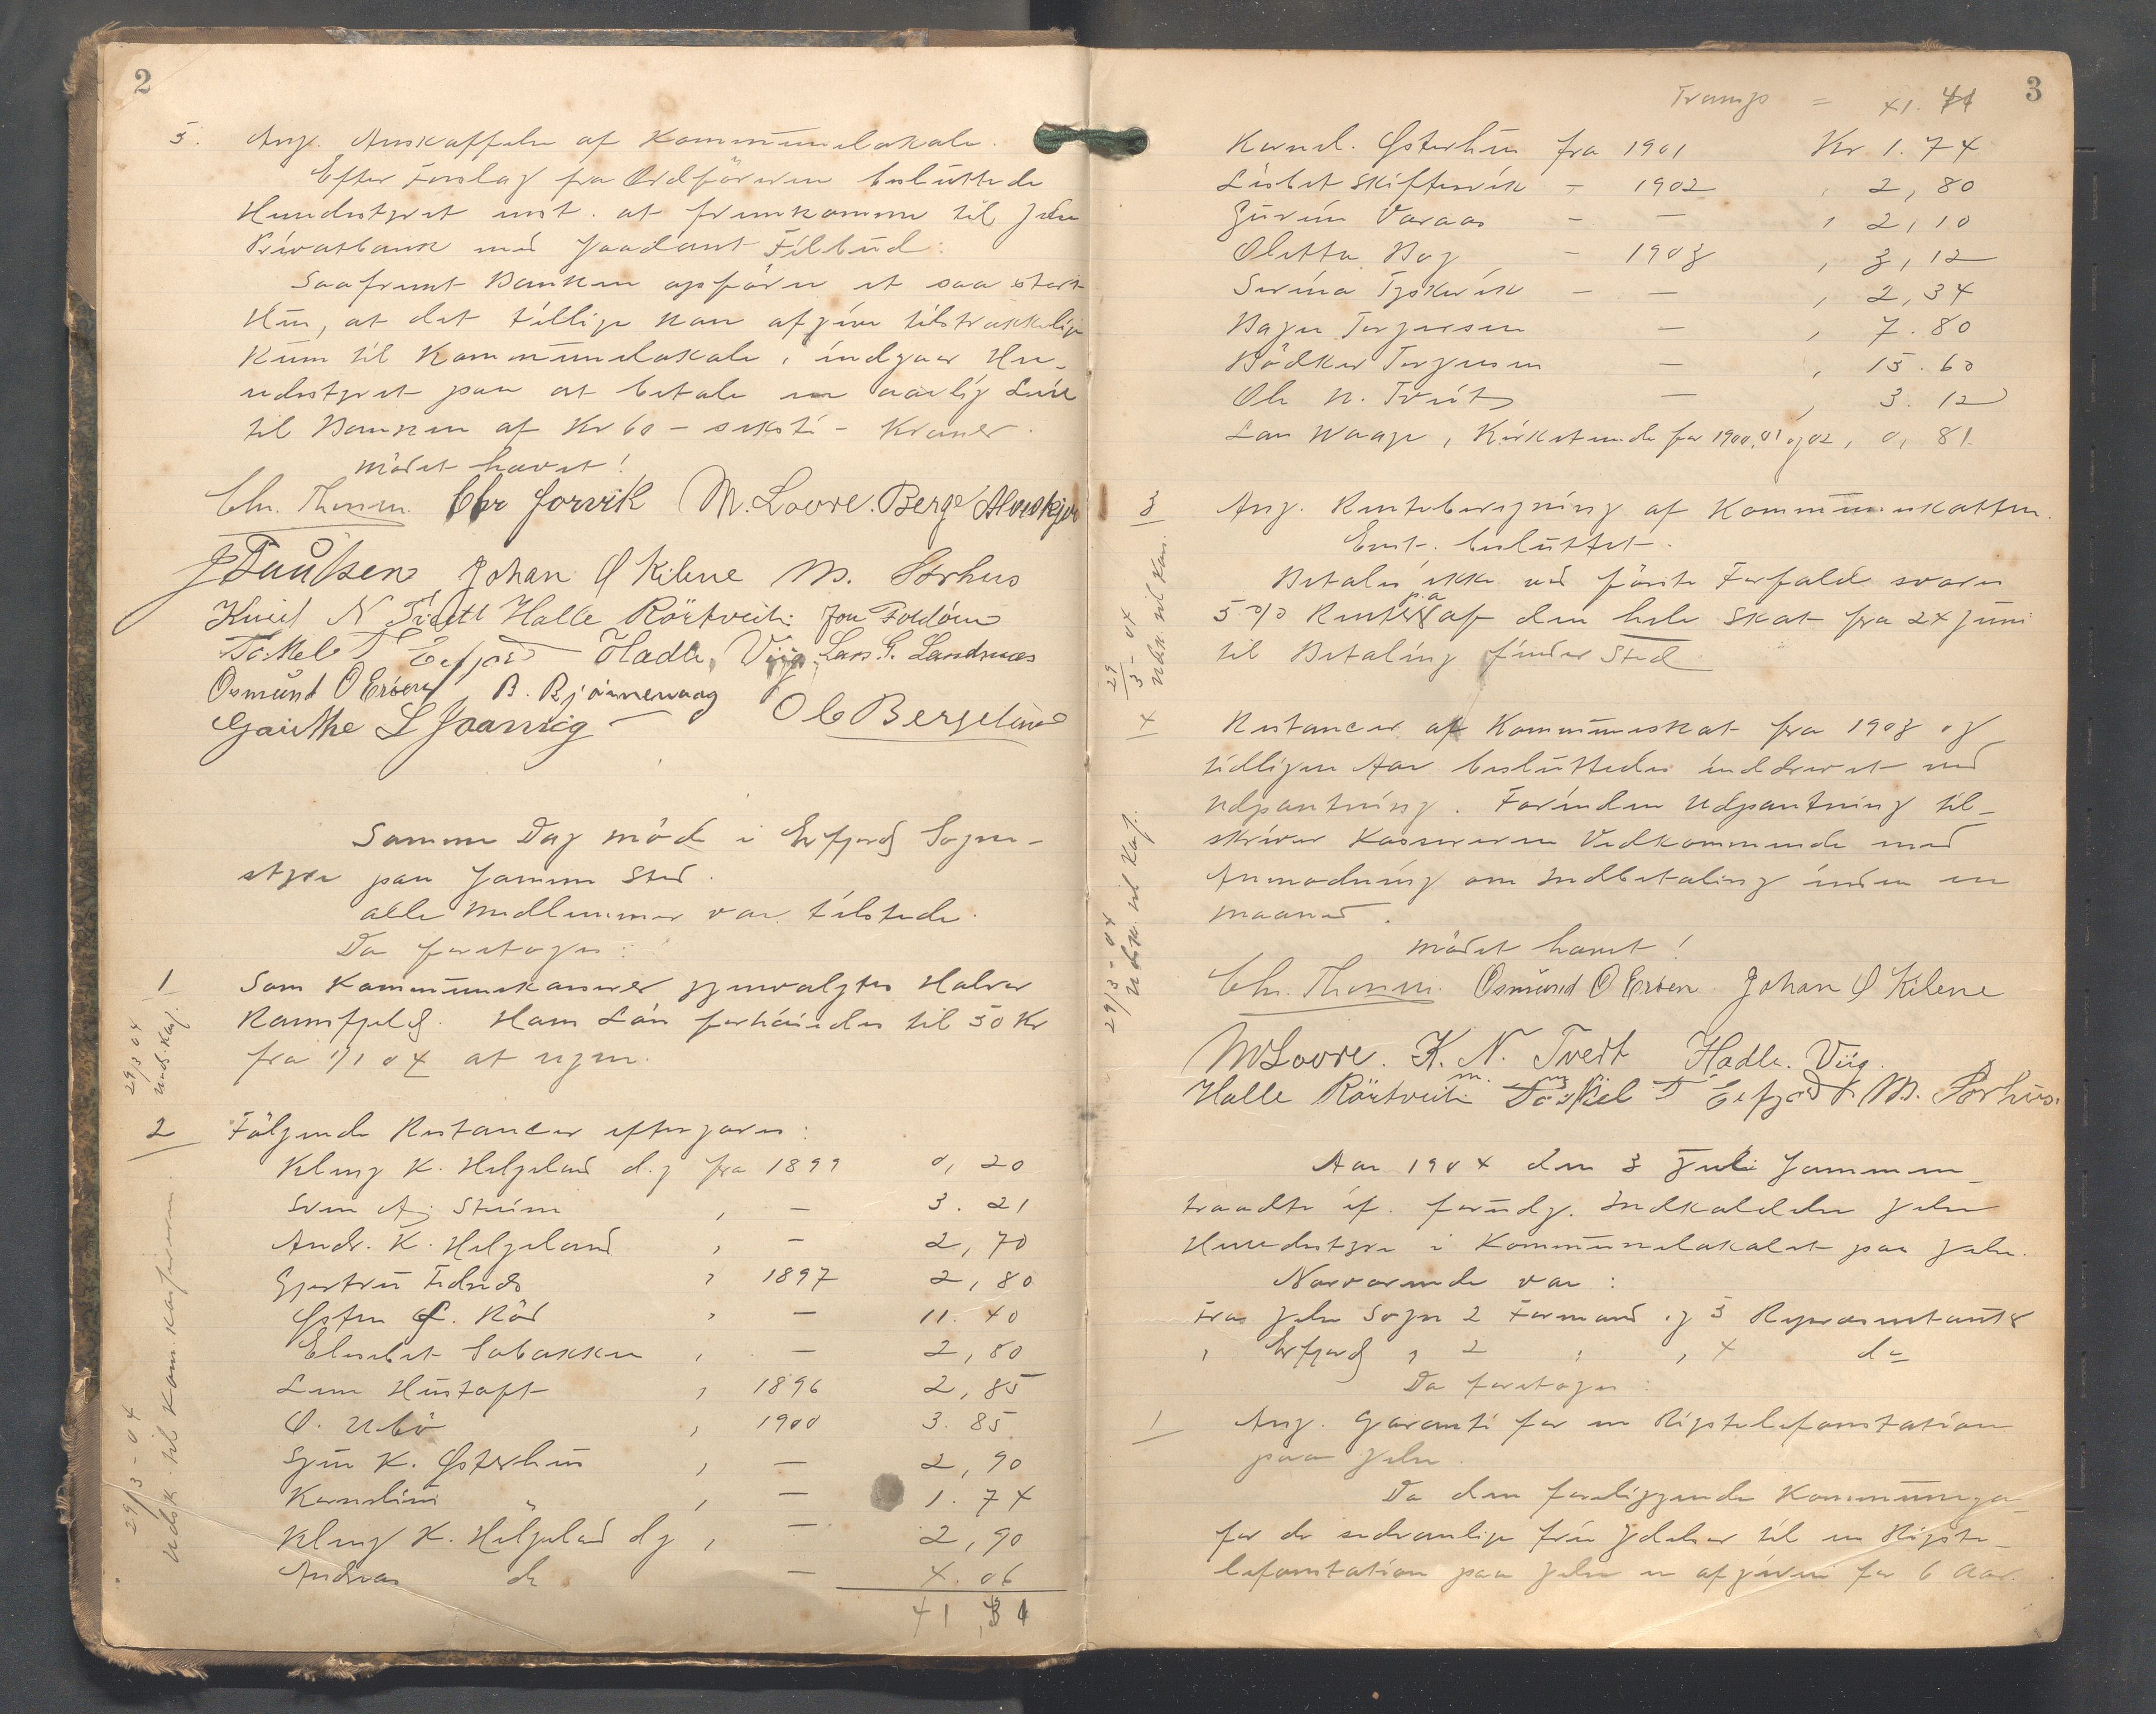 2
5. Ang. Anskaffelse af Kommunelokale.
Efter Forslag fra Ordföreren besluttede
Herredstyret enst. at fremkomme til Jelse
Privatbank med saadant Tilbud:
Saafremt Banken opförer et saa stort
Hus, at det tillige kan afgive tilstrækkelig
Rum til Kommunelokale, indgaar Her-
redstyret paa at betale en aarlig Leie
til Banken af Kr 60 - seksti - Kroner.
Mödet hævet!
Chr. Thomsen. Chr Jorvik M. Loove. Berge Alvestkjær
J Paulsen Johan Ø Kilene M. Sørhus
Knud N Tvedt Halle Rörtveit Jon Foldöen
Torkel T Erfjord Hadle Viig. Lars G. Landsnæs
Osmund O Eröen B. Bjönnevaag
Gauthe L Haavig Ole Bergeland
Samme Dag möde i Erfjords Sogne-
styre paa samme Sted.
Alle Medlemmer var tilstede.
Da foretoges:
1 Som Kommunekasserer gjenvalgtes Halvor
Ramsfjeld. Hans Lön forhöiedes til 50 Kr
fra 1/1 04 at regne.
29/3 04
Uds. Kas.
2 Fölgende Restancer eftergaves:
Kleng K. Helgeland d.y fra 1899 0,20
Sven Aj. Steine , — 3.21
Andr. K. Helgeland , — 2,70
Gjertru Tednes , 1897 2,80
Østen Rød , — 11.40
Elisabet Sabakken , — 2,80
Lene Hustoft , 1896 2,85
O. Ubö , 1900 3.85
Sjur K. Østerhus , — 2,90
Karnelius " , — 1.74
Kleng K. Helgeland dy , — 2,90
Andreas do — 4.06
41,31
29/3 - 04
Udsk. til Kom. kassereren.
3
Transp = 41.41
Kornel. Østerhus fra 1901 Kr 1.74
Lisbet Skiftesvik - 1902 , 2,80
Guren Varaas - — , 2,10
Oletta Bog - 1903 , 3,12
Serina Tyskevik - — , 2,34
Bager Torgersen — , 7.80
Bödker Torgersen — , 15.60
Ole N. Tveit — , 3.12
Lars Waage, Kirketiende for 1900, 01 og 02, 0,81
3 Ang. Renteberegning af Kommuneskatten.
Enst. besluttet.
Betales ikke ved förste Forfald svares
5 % Rente p.a af den hele Skat fra 24 Juni
til Betaling finder Sted
29/3 - 04
Udsk til Kas.
4 Restancer af Kommuneskat fra 1903 og
tidligere Aar besluttedes inddrevet ved
Udpantning. Forinden Udpantning til-
skriver Kassereren Vedkommende med
Anmodning om Indbetaling inden en
Maaned.
29/3 - 04
Udsk. til Kas.
Mödet hævet!
Chr. Thomsen. Osmund O Eröen Johan Ø Kilene
M Loove. K. N. Tvedt Hadle. Viig.
Halle Rörtveit Torkel T Erfjord M. Sørhus.
Aar 1904 den 3 Juli sammen-
traadte if. forudg. Indkaldelse Jelse
Herredstyre i Kommunelokalet paa Jelse.
Nærværende var:
Fra Jelse Sogn 2 Formænd og 5 Repræsentanter
, Erfjord , 2 , , 4 do
Da foretoges:
1 Ang. Garanti for en Rigstelefonstation
paa Jelse.
Da den foreliggende Kommunega-
for de sedvanlige frie Ydelser til en Rigste-
lefonstation paa Jelse er afgiven for 6 Aar.